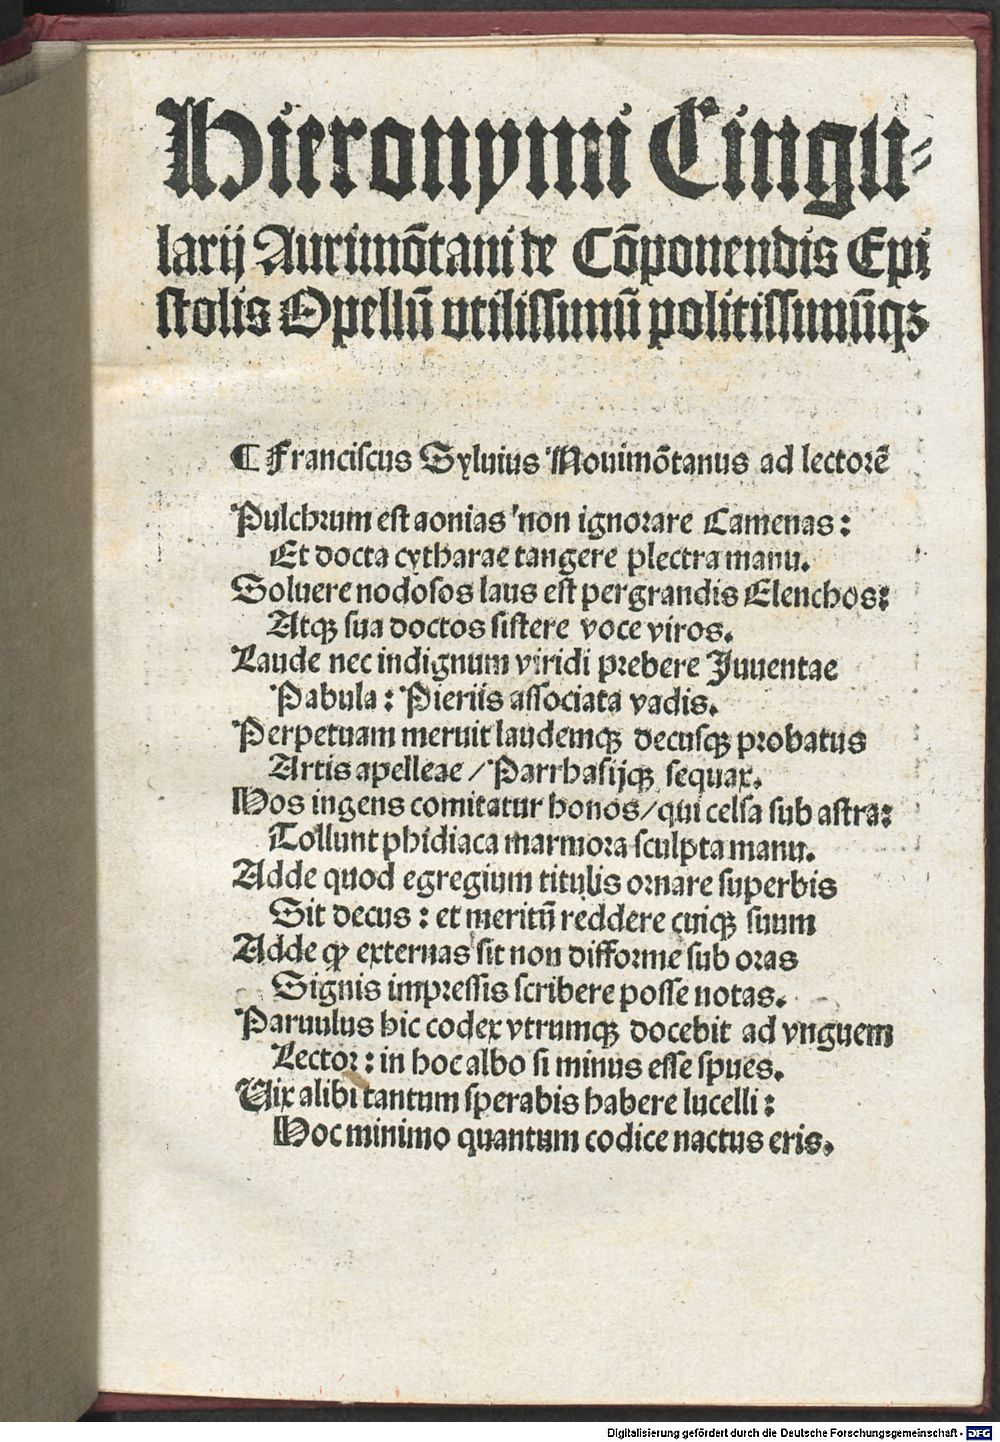 Hieronymi Cingu⸗
larij Aurimōtani de Cōponendis Epi
stolis Opellū vtilissimū politissimūqꝫ
¶ Franciscus Syluius Nouimōtanus ad lectorē
Pulchrum est aonias non ignorare Camenas:
Et docta cytharae tangere plectra manu.
Soluere nodosos laus est pergrandis Elenchos:
Atqꝫ sua doctos sistere voce viros.
Laude nec indignum viridi prebere Juuentae
Pabula: Pieriis associata vadis.
Perpetuam meruit laudemqꝫ decusqꝫ probatus
Artis apelleae / Parrhasijqꝫ sequax.
Hos ingens comitatur honos / qui celsa sub astra:
Tollunt phidiaca marmora sculpta manu.
Adde quod egregium titulis ornare superbis
Sit decus: et meritū reddere cuiqꝫ suum
Adde ꝙ externas sit non difforme sub oras
Signis impressis scribere posse notas.
Paruulus hic codex vtrumqꝫ docebit ad vnguem
Lector: in hoc albo si minus esse spues.
Uix alibi tantum sperabis habere lucelli:
Hoc minimo quantum codice nactus eris.
Digitalisierung gefördert durch die Deutsche Forschungsgemeinschaft - DFG